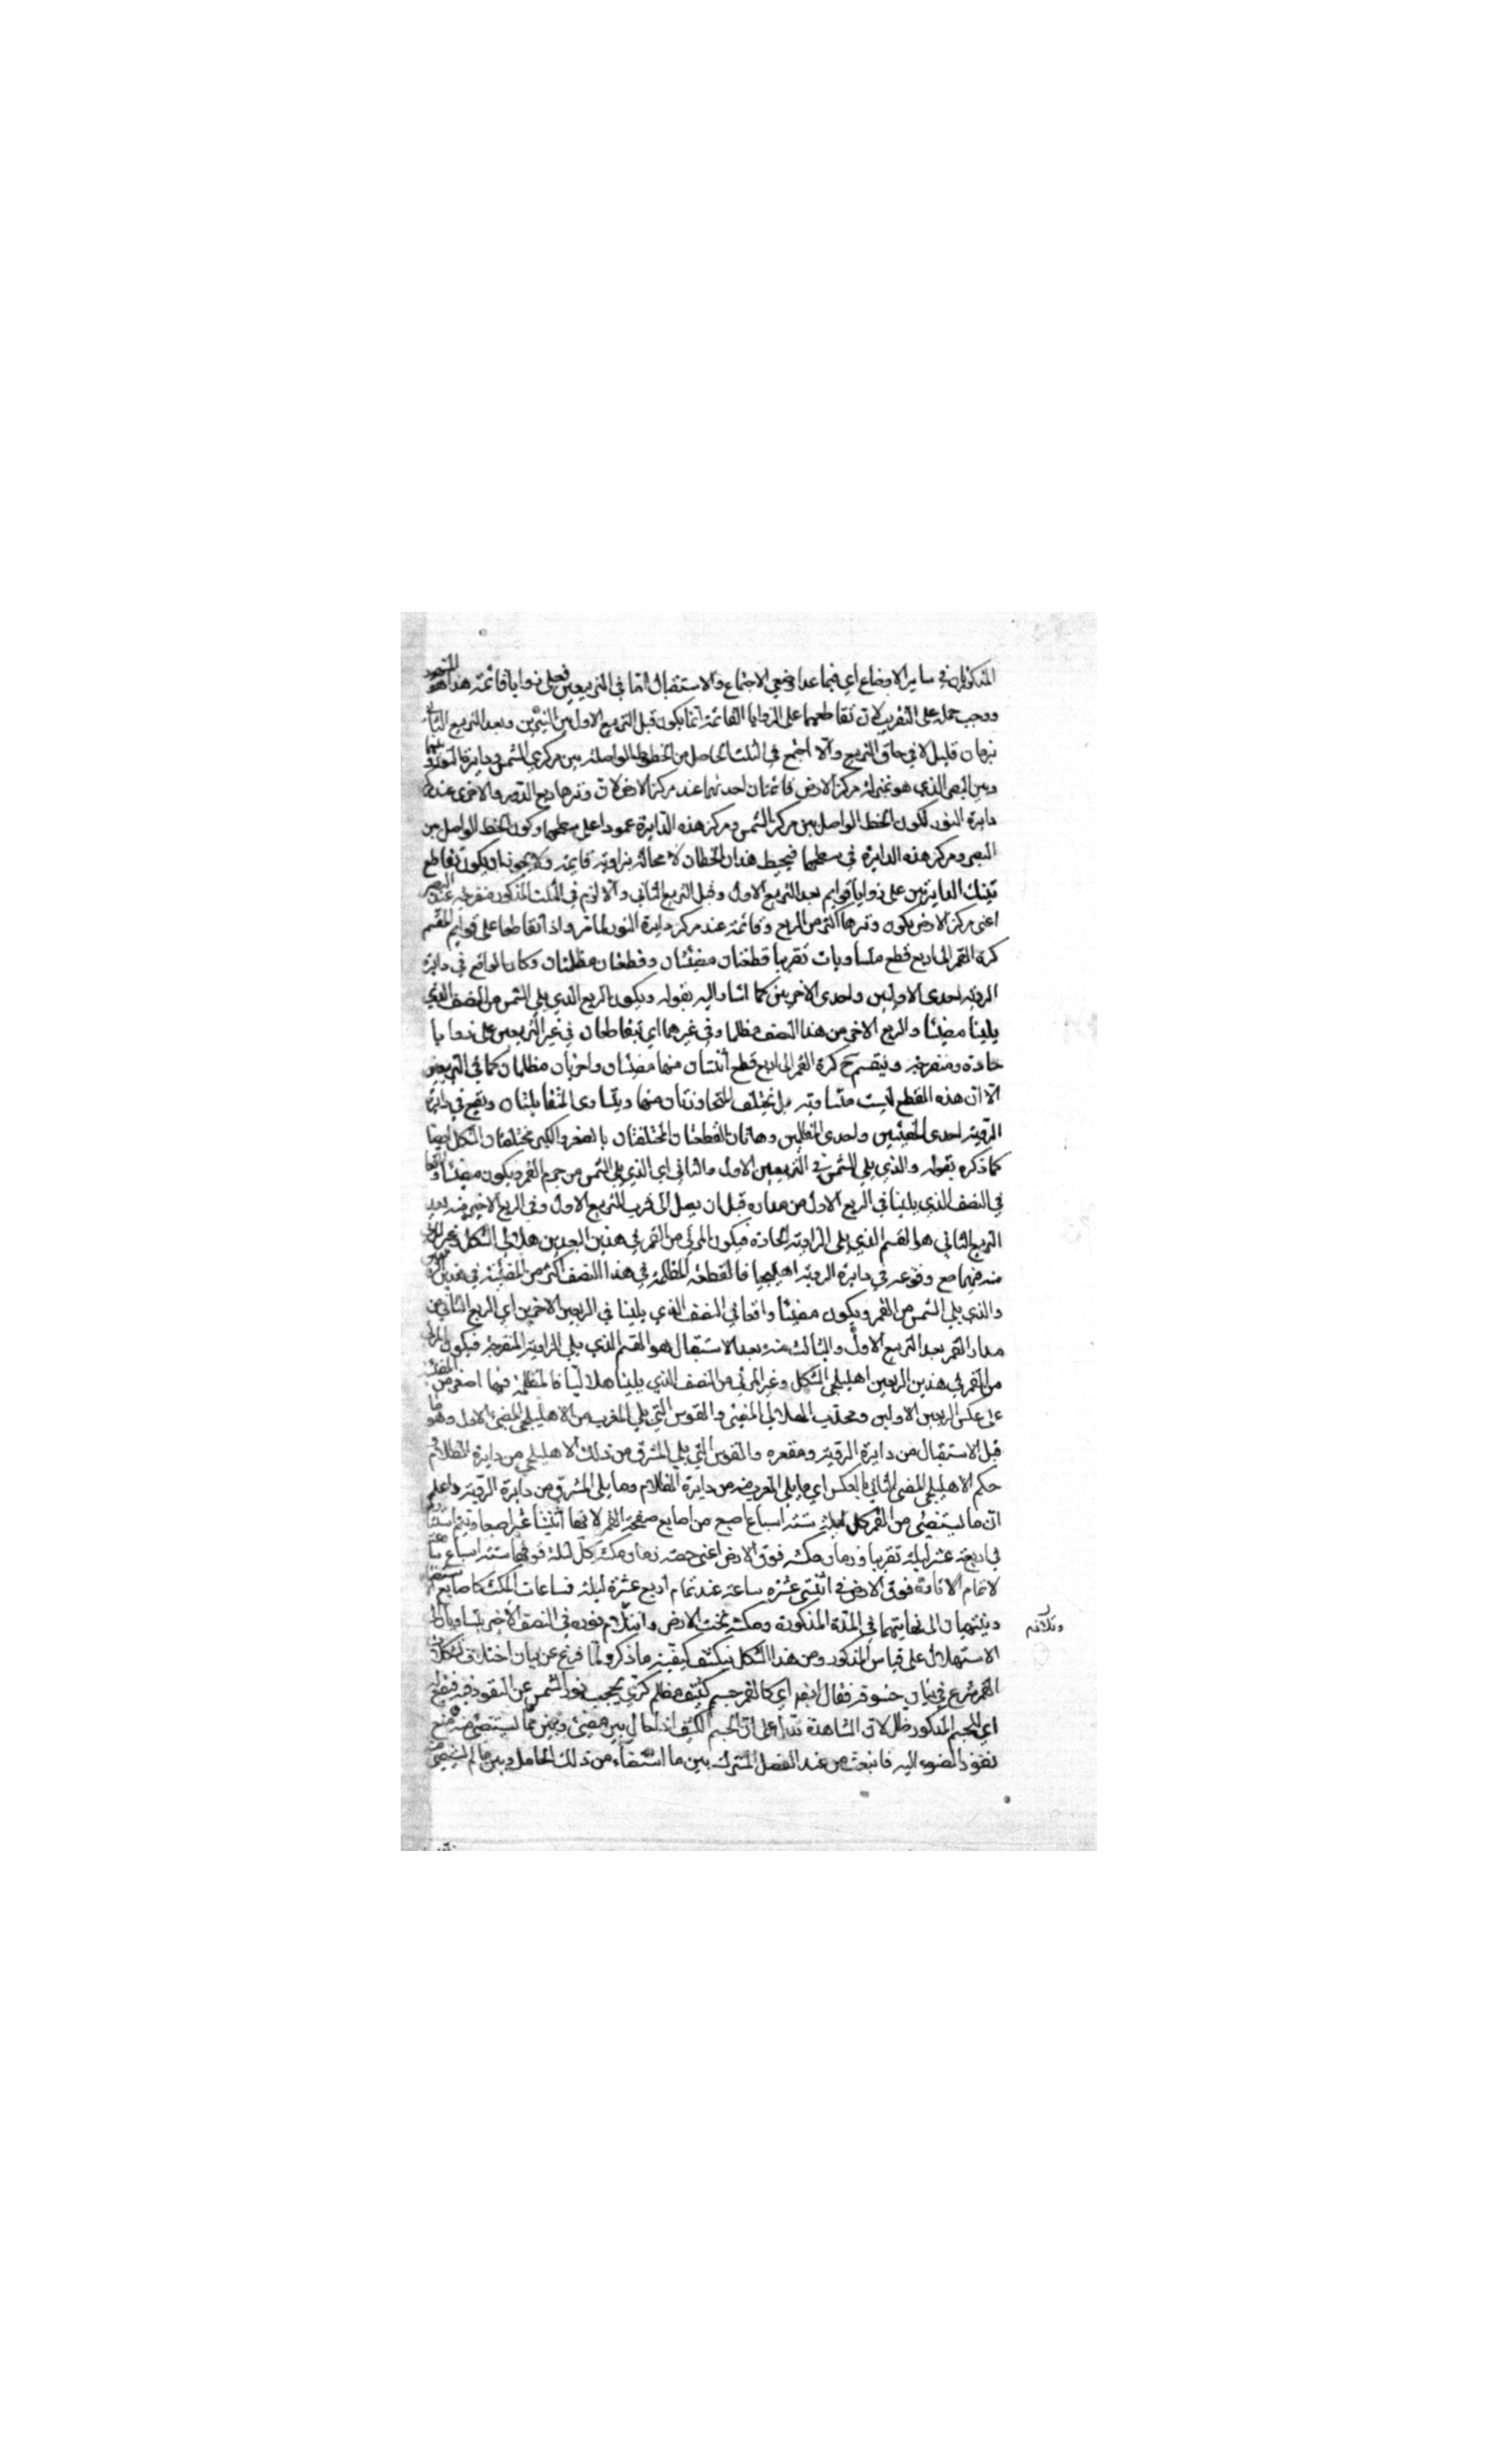 المذكورتان في ساير الاوضاع اي فيما عدا وضعي الاجتماع والاستقبال اما في التربيعين فعلى زوايا قائمة هذا هو المشهور
ووجب حمله على التقريب لان تقاطعهما على الزوايا القائمة انما يكون قبل التربيع الاول من النيرين وبعد التربيع الثاني
بزمان قليل لا في حاق التربيع والا اجتمع في المثلث الحاصل من الخطوط الواصلة بين مركزي الشمس ودايرة النور و بينهما
وبين البصر الذي هو بمنزلة مركز الارض قائمتان احديهما عند مركز الارض لان وترها ربع الدور والاخرى عند مركز
دايرة النور لكون الخط الواصل بين مركز الشمس ومركز هذه الدايرة عمودا على سطحها وكون الخط الواصل بين
البصر ومركز هذه الدايرة في سطحها فيحيط هذان الخطان لا محالة بزاوية قايمة ولا يجوز ان يكون تقاطع
تينك الدايرتين على زوايا قوايم بعد التربيع الاول وقبل التربيع الثاني والا لزم في المثلث المذكور منفرجة عند البصر
اعني مركز الارض يكون وترها اكثر من الربع وقائمة عند مركز دايرة النور لما مر واذا تقاطعا على قوايم انقسم
كرة القمر الى اربع قطع متساويات تقريبا قطعتان مضيئتان وقطعتان مظلمتان وكان الواقع في دايرة
الرؤية احدى الاوليين واحدى الاخريين كما اشار اليه بقوله ويكون الربع الذي يلي الشمس من النصف الذي
يلينا مضيئا والربع الاخر من هذا النصف مظلما وفي غيرهما اي يتقاطعان في غير التربيعين على زوايا
حادة ومنفرجة وينقسم ح كرة القمر الى اربع قطع اثنتان منها مضيئتان واخريان مظلمتان كما في التربيعين
الا ان هذه القطع ليست متساوية بل تختلف المتجاورتان منها ويتساوى المتقابلتان ويقع في دايرة
الرؤية احدى المضيئتين واحدى المظلمتين وهاتان القطعتان المختلفتان بالصغر والكبر مختلفتان الشكل ايضا
كما ذكره بقوله والذي يلي الشمس في التربيعين الاول والثاني اي الذي يلي الشمس من جرم القمر ويكون مضيئا واقعا
في النصف الذي يلينا في الربع الاول من مداره قبل ان يصل الى قرب التربيع الاول وفي الربع الاخير منه بعد
التربيع الثاني هو القسم الذي يلي الزاوية الحادة فيكون المرئي من القمر في هذين البعدين هلالي الشكل وغير المرئي
منه فيهما مع وقوعه في دايرة الرؤية اهليلجيا فالقطعة المظلمة في هذا النصف اكثر من المضيئة في هذين
والذي يلي الشمس من القمر ويكون مضيئا واقعا في النصف الذي يلينا في الربعين الاخرين اي الربع الثاني من
مدار القمر بعد التربيع الاول والثالث منه بعد الاستقبال هو القسم الذي يلي الزاوية المنفرجة فيكون المرئي
من القمر في هذين الربعين اهليلجي الشكل وغير المرئي من النصف الذي يلينا هلاليا فالمظلمة فيهما اصغر من المضيئة
على عكس الربعين الاولين ومحدب الهلالي المضيء والقوس التي يلي المغرب من الاهليلجي المضيء الاول وهو ما
قبل الاستقبال من دايرة الرؤية ومقعره والقوس التي يلي المشرق من ذلك الاهليلجي من دايرة الظلام و
حكم الاهليلجي المضيء الثاني بالعكس اي ما يلي المغرب منه من دايرة الظلام وما يلي المشرق من دايرة الرؤية واعلم
ان ما يستضيء من القمر كل ليلة ستة اسباع اصبع من اصابع صفحة القمر لانها اثنتا عشر اصبعا ويتم
في اربعة عشر ليلة تقريبا وزمان مكثه فوق الارض اعني حصة زمان مكثه كل ليلة فوقها ستة اسباع ساعة
لاتمام الانارة فوق الارض في اثنتي عشرة ساعة عند تمام اربع عشرة ليلة فساعات المكث كاصابع
وينتهيان الى نهايتهما في المدة المذكورة ومكثه تحت الارض وانثلام نوره في النصف الاخر يتساويان الى
الاستهلال على قياس المذكور ومن هذا الشكل ينكشف كيفية ما ذكر ولما فرغ عن بيان اختلاف تشكلات
القمر شرع في بيان خسوفه فقال ايضا اي كالقمر جسم كثيف مظلم كري يحجب نور الشمس عن النفوذ فيه فيقع له
اي للجسم المذكور ظل لان المشاهدة تدل على ان الجسم الكثيف اذا حال بين مضيء وبين ما يستضيء منه منع
نفوذ الضوء اليه فانبعث من عند الفصل المشترك بين ما استضاء من ذلك الحامل وبين ما لم يستضيء